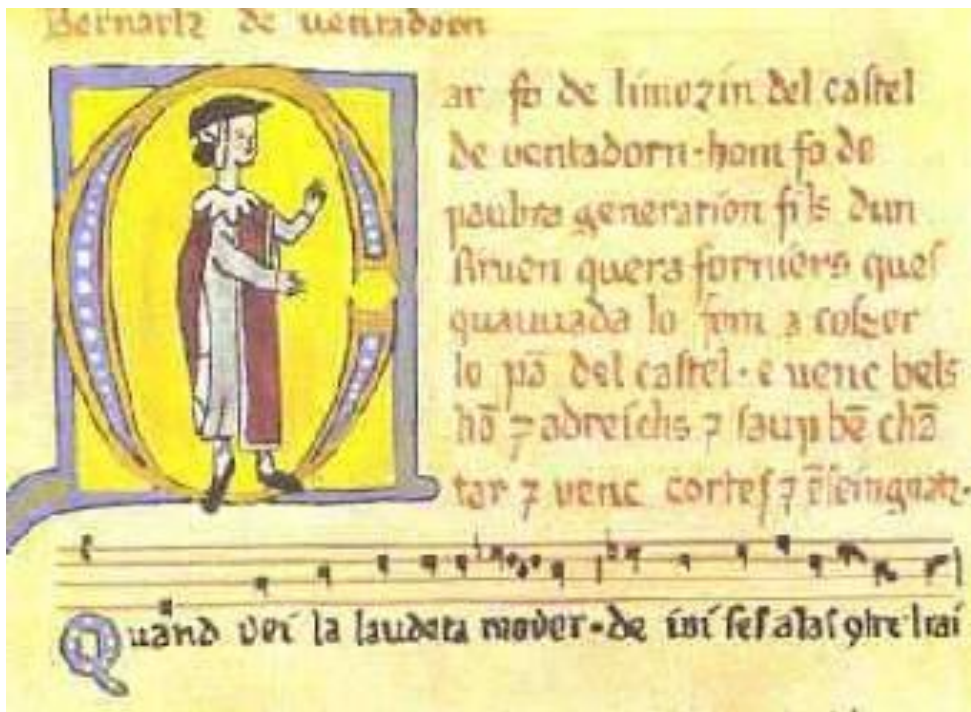 Bernartz de uentadorn
ar fo de limozin del castel
de uentadorn·hom fo de
paubra generation fils dun
siruen quera forniers ques
quauuada lo forn a coszer
lo pā del castel·e uenc bels
hō ⁊ adreichs ⁊ saup bē chā
tar ⁊ uenc cortes ⁊ ēseingnatz·
Quand vei la laudeta mover·de ioi ses alas ꝯtre lrai